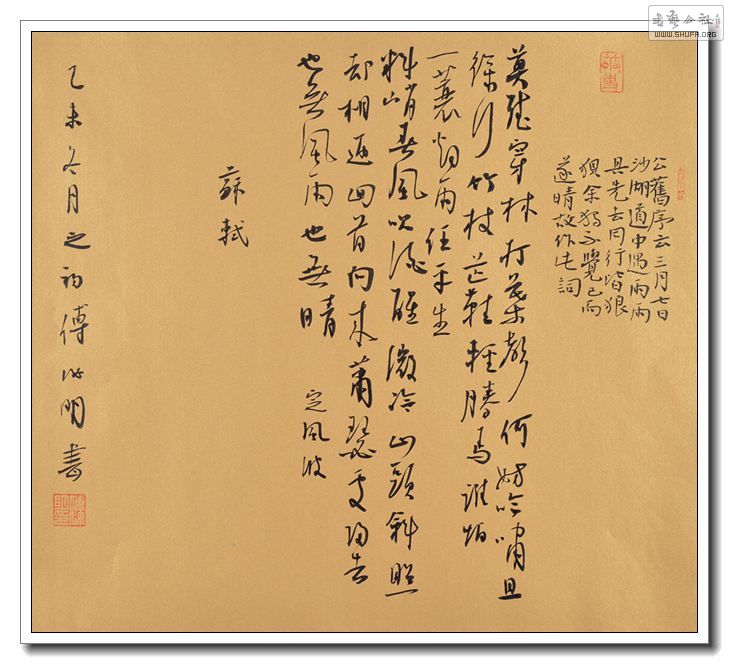 書藝公社
WWW.SHUFA.ORG
公舊序云三月七日
沙湖道中遇雨雨
具先去同行皆狼
狽余獨不覺已而
遂晴故作此詞
莫聽穿林打葉聲何妨吟嘯且
徐行竹杖芒鞋輕勝馬誰怕
一蓑烟雨任平生
料峭春風吹酒醒微冷山頭斜照
却相迎回首向来蕭瑟處歸去
也無風雨也無晴 定風波
蘇軾
乙未冬月之初傅明書